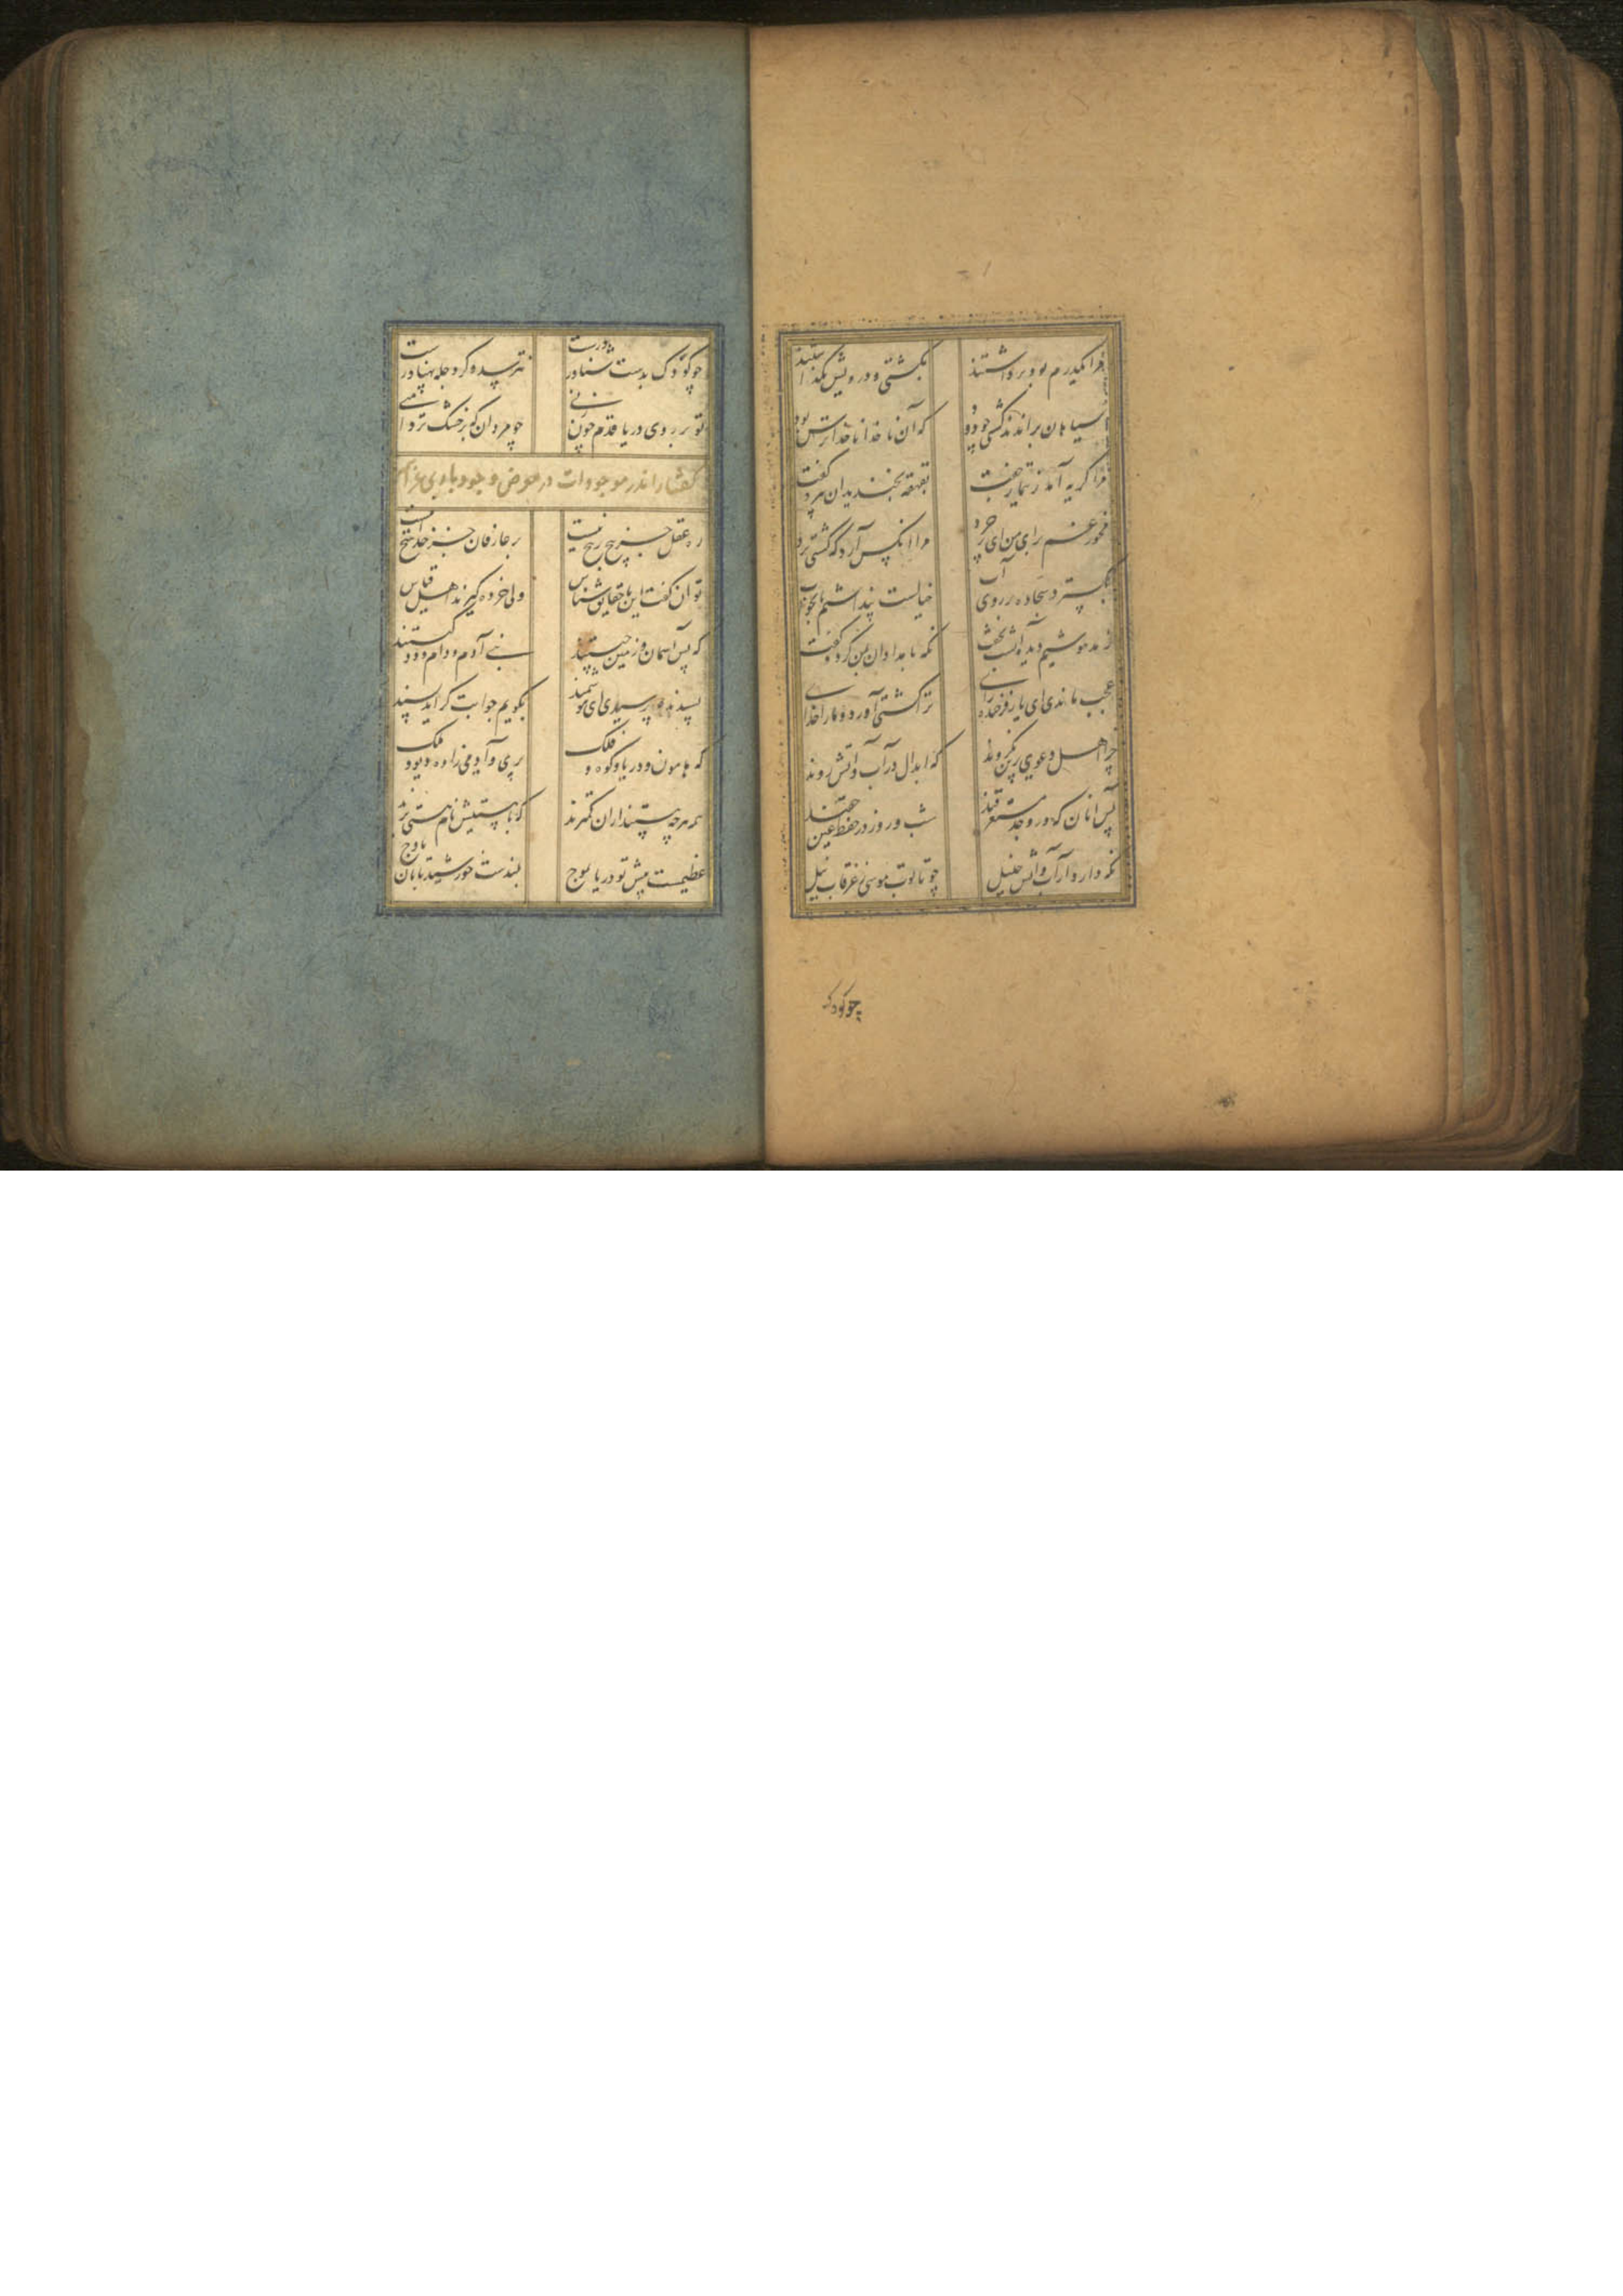 مرا یکدرم بود برداشتند بکشتی و درویش بگذاشتند
سیاهان براندند کشتی چو دود که آن ناخدا ناخدا ترس بود
مرا گریه آمد ز تیمار جفت بقهقه بخندید آن مرد و گفت
مخور غم برای من ای پرخرد مرا آنکس آرد که کشتی برد
بگسترد سجاده بر روی آب خیالست پنداشتم یا بخواب
ز مدهوشیم دیده آن شب نخفت نگه بامدادان بمن کرد و گفت
عجب ماندی ای یار فرخنده رای ترا کشتی آورد و ما را خدای
چرا اهل دعوی بدین نگروند که ابدال در آب و آتش روند
پس آنان که در وجد مستغرقند شب و روز در عین حفظ حقند
نگه دارد از آب و آتش خلیل چو تابوت موسی ز غرقاب نیل
چو کودک
چو کودک بدست شناور درست نترسد و گر دجله پهناورست
تو بر روی دریا قدم چون زنی چو مردان که بر خشک تردامنی
گفتار اندر موجودات در معرض وجود باری عز اسمه
ره عقل جز پیچ بر پیچ نیست بر عارفان جز خدا هیچ نیست
توان گفت این با حقایق شناس ولی خرده گیرند اهل قیاس
که پس آسمان و زمین چیستند بنی آدم و دام و دد کیستند
پسندیده پرسیدی ای هوشمند بگویم جوابت گر آید پسند
که هامون و دریا و کوه و فلک پری و آدمی زاده و دیو و ملک
همه هرچه هستند از آن کمترند که با هستیش نام هستی برند
عظیمست پیش تو دریا بموج بلندست خورشید تابان باوج